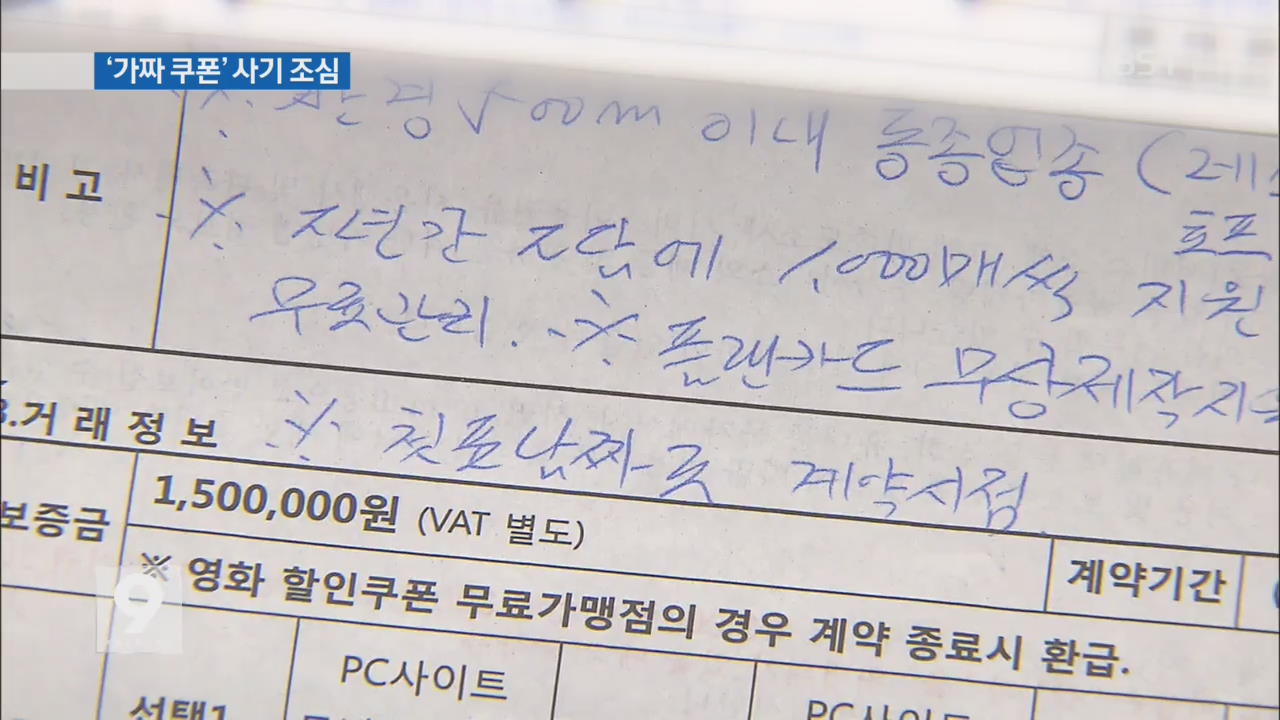 ‘가짜 쿠폰’ 사기 조심
※ 반경 500m 이내 동종업종 (레
호프
비 고
※ 2년간 2달에 1,000매씩 지원
무료관리. ※ 플랜카드 무상제작지
3.거 래 정 보
※ 첫쿠폰날짜로 계약시점
보증금
1,500,000원 (VAT 별도)
계약기간
※ 영화 할인쿠폰 무료가맹점의 경우 계약 종료시 환급.
PC사이트
선택1
PC사이트
9